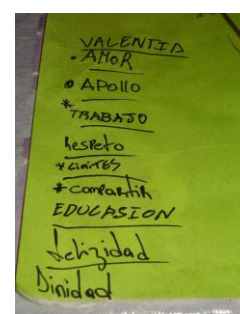 VALENTIA
• AMOR
• APOllO
* TRABAJO
hesPeto
* LIMITES
* compartih
EDUCASION
felizidad
Dinidad